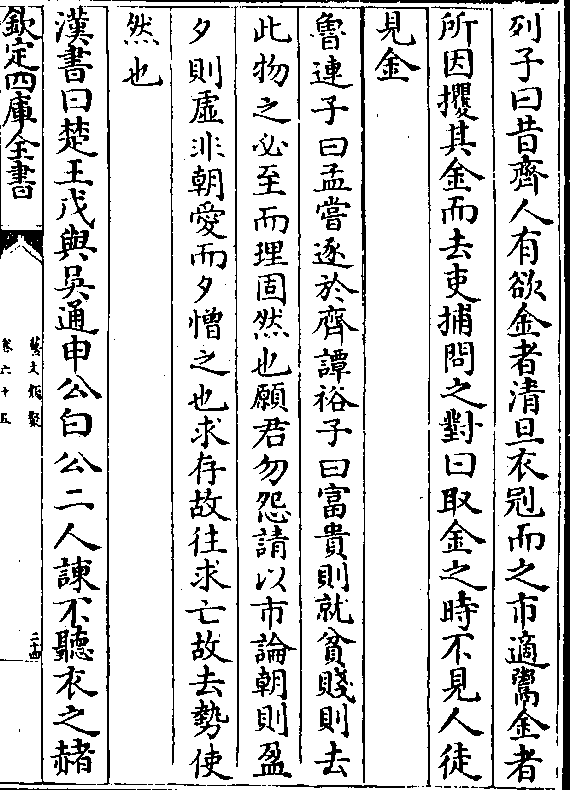 列子曰昔齊人有欲金者清旦衣冠而之市適鬻金者
所因攫其金而去吏捕問之對曰取金之時不見人徒
見金
魯連子曰孟嘗逐於齊譚裕子曰富貴則就貧賤則去
此物之必至而理固然也願君勿怨請以市論朝則盈
夕則虛非朝愛而夕憎之也求存故往求亡故去勢使
然也
漢書曰楚王戊與吳通申公白公二人諫不聽衣之赭
欽定四庫全書
藝文類聚
卷六十五
二十四